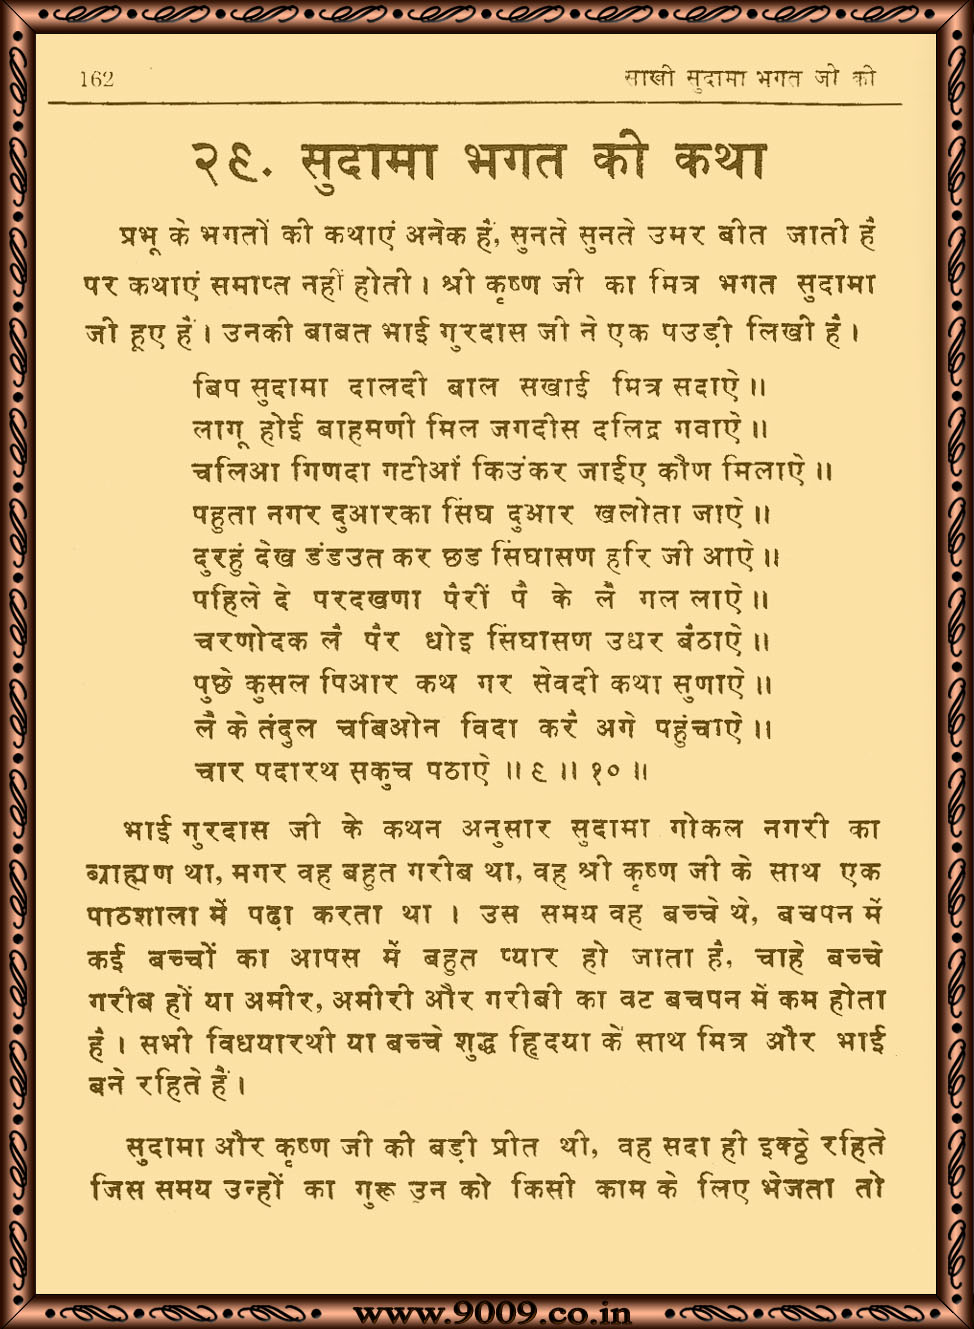 162 साखी सुदामा भगत जी की
२९. सुदामा भगत की कथा
प्रभू के भगतों की कथाएं अनेक हैं, सुनते सुनते उमर बीत जाती है
पर कथाएं समाप्त नहीं होती। श्री कृष्ण जी का मित्र भगत सुदामा
जी हूए हैं। उनकी बाबत भाई गुरदास जी ने एक पउड़ी लिखी है।
बिप सुदामा दालदी बाल सखाई मित्र सदाऐ॥
लागू होई बाहमणी मिल जगदीस दलिद्र गवाऐ॥
चलिआ गिणदा गटीआं किउंकर जाईए कौण मिलाऐ॥
पहुता नगर दुआरका सिंघ दुआर खलोता जाऐ॥
दुरहुं देख डंडउत कर छड सिंघासण हरि जी आऐ॥
पहिले दे परदखणा पैरीं पै के लै गल लाऐ॥
चरणोदक लै पैर धोइ सिंघासण उधर बैठाऐ॥
पुछे कुसल पिआर कथ गर सेवदी कथा सुणाऐ॥
लै के तंदुल चबिओन विदा करै अगे पहुंचाऐ॥
चार पदारथ सकुच पठाऐ॥९॥१०॥
भाई गुरदास जी के कथन अनुसार सुदामा गोकल नगरी का
ब्राह्मण था, मगर वह बहुत गरीब था, वह श्री कृष्ण जी के साथ एक
पाठशाला में पढ़ा करता था। उस समय वह बच्चे थे, बचपन में
कई बच्चों का आपस में बहुत प्यार हो जाता है, चाहे बच्चे
गरीब हों या अमीर, अमीरी और गरीबी का वट बचपन में कम होता
है। सभी विधयारथी या बच्चे शुद्ध ह्रिदया के साथ मित्र और भाई
बने रहिते हैं।
सुदामा और कृष्ण जी की बड़ी प्रीत थी, वह सदा ही इक्ठ्ठे रहिते
जिस समय उन्हों का गुरू उन को किसी काम के लिए भेजता तो
www.9009.co.in